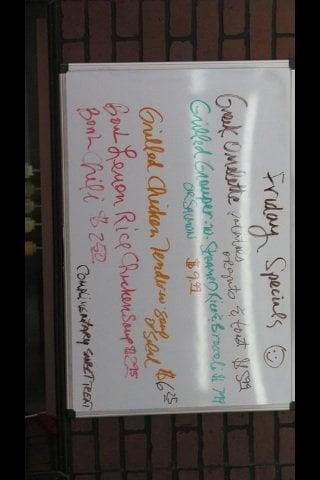 Friday Specials
Greek Omelette w/ grits & toast $5.99
Grilled Grouper w. Steamed Rice & Broccoli $7.99
OR SALMON $9.99
Grilled Chicken Tender w/ Soup or Salad $6.25
Bowl Lemon Rice Chicken Soup $2.75
Bowl Chili $2.50
COMPLIMENTARY SWEET TREAT